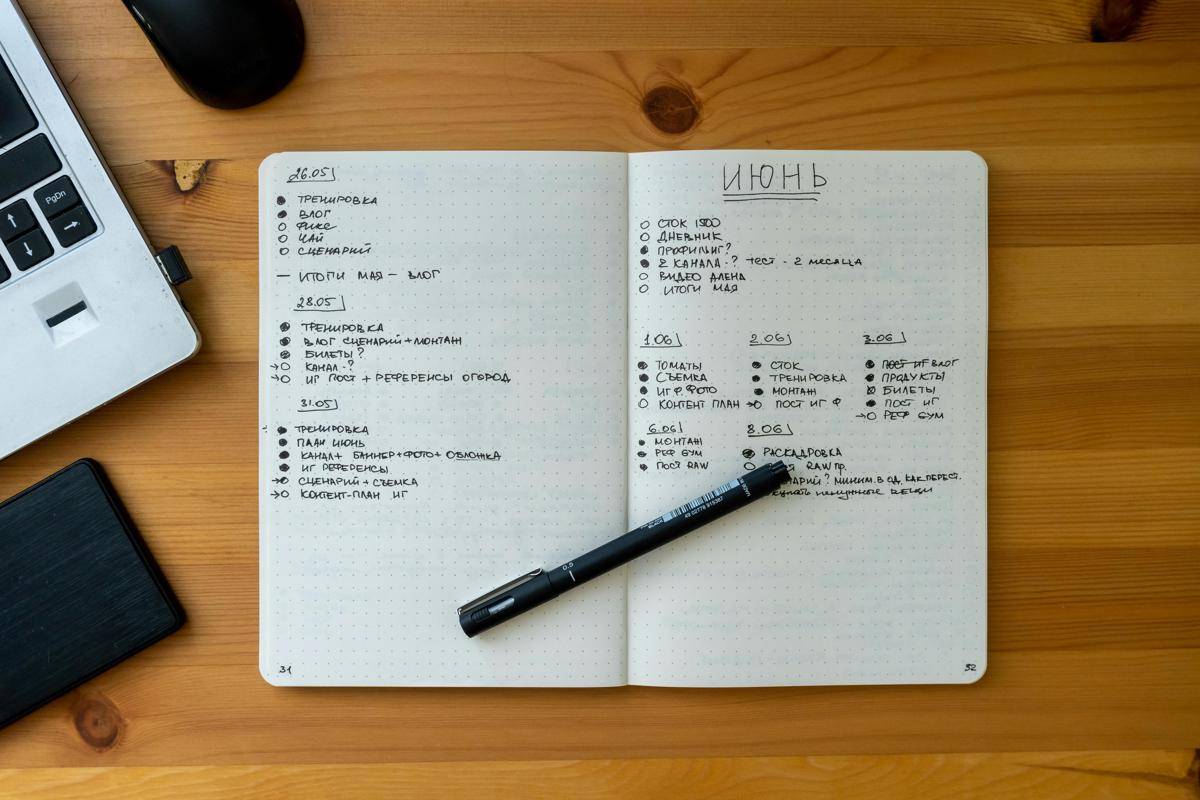 PgDn
26.05
ТРЕНИРОВКА
ВЛОГ
ФИКС
ЧАЙ
СЦЕНАРИЙ
— ИТОГИ МАЯ — ВЛОГ
28.05
ТРЕНИРОВКА
ВЛОГ СЦЕНАРИЙ + МОНТАЖ
БИЛЕТЫ?
КАНАЛ - ?
ИГ ПОСТ + РЕФЕРЕНСЫ ОГОРОД
31.05
ТРЕНИРОВКА
ПЛАН ИЮНЬ
КАНАЛ + БАННЕР + ФОТО + ОБЛОЖКА
ИГ РЕФЕРЕНСЫ
СЦЕНАРИЙ + СЪЕМКА
КОНТЕНТ-ПЛАН ИГ
31
ИЮНЬ
СТОК 1500
ДНЕВНИК
ПРОФИЛЬ ИГ?
2 КАНАЛА - ? ТЕСТ - 2 месяца
ВИДЕО АЛЕНА
ИТОГИ МАЯ
1.06
ТОМАТЫ
СЪЕМКА
ИГ Ф. ФОТО
КОНТЕНТ ПЛАН
2.06
СТОК
ТРЕНИРОВКА
МОНТАЖ
ПОСТ ИГ Ф
3.06
ПОСТ ИГ ВЛОГ
ПРОДУКТЫ
БИЛЕТЫ
ПОСТ ИГ
РЕФ GYM
6.06
МОНТАЖ
РЕФ GYM
ПОСТ RAW
8.06
РАСКАДРОВКА
RAW пр.
МИНИМ. В ОД. КАК ПЕРЕСТ.
ненужные вещи
0.5
32